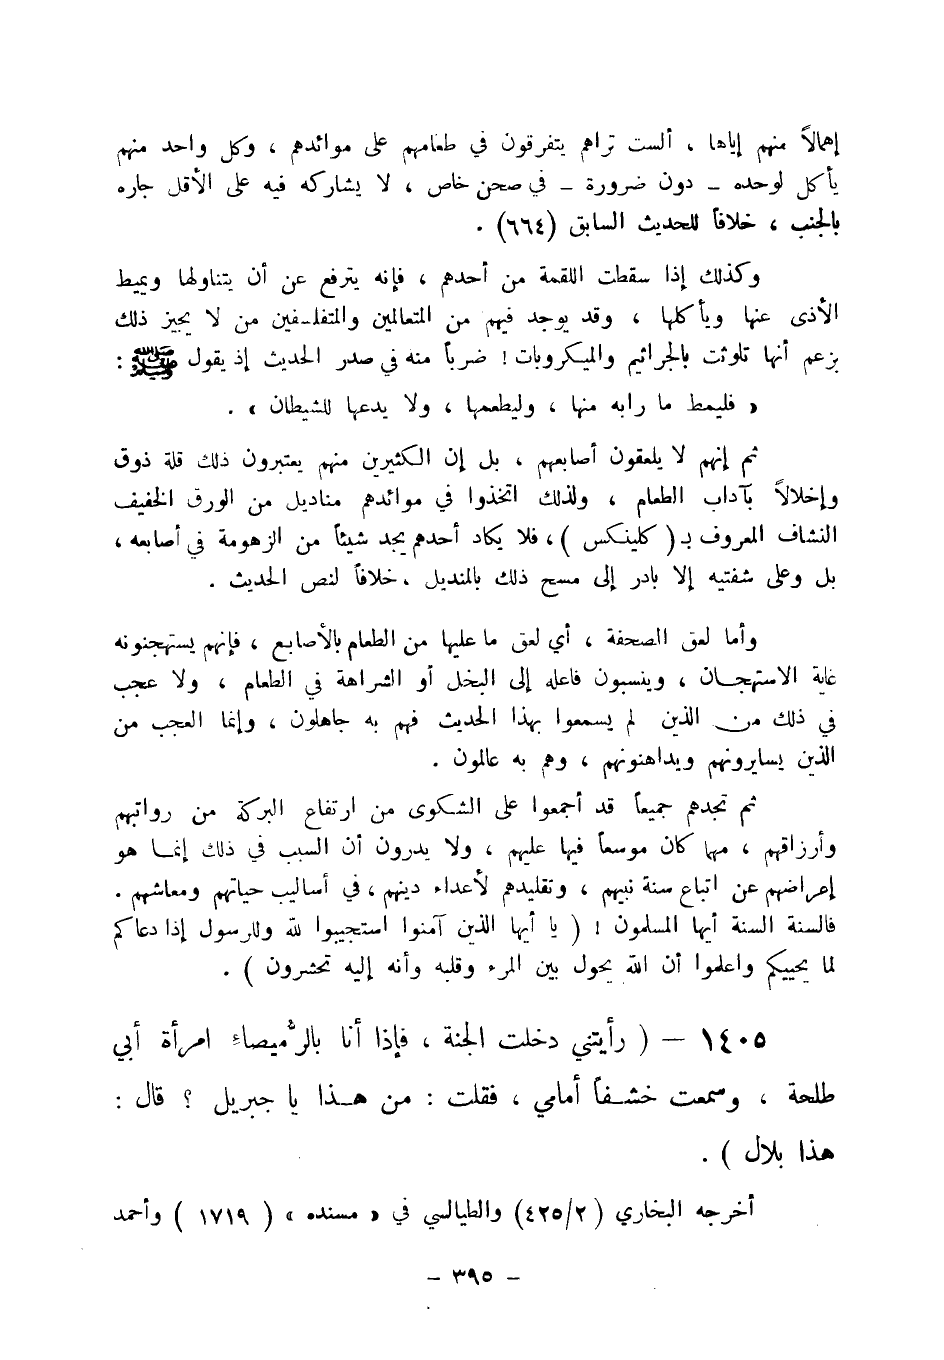 إهمالاً منهم إياها ، ألست تراهم يتفرقون في طعامهم على موائدهم ، وكل واحد منهم
يأكل لوحده – دون ضرورة – في صحن خاص ، لا يشاركه فيه على الأقل جاره
بالجنب ، خلافاً للحديث السابق (٦٦٤) .
وكذلك إذا سقطت اللقمة من أحدهم ، فإنه يترفع عن أن يتناولها ويميط
الأذى عنها ويأكلها ، وقد يوجد فيهم من المتعالمين والمتفلسفين من لا يجيز ذلك
بزعم أنها تلوثت بالجراثيم والميكروبات ! ضرباً منه في صدر الحديث إذ يقول ﷺ :
« فليمط ما رابه منها ، وليطعمها ، ولا يدعها للشيطان » .
ثم إنهم لا يلعقون أصابعهم ، بل إن الكثيرين منهم يعتبرون ذلك قلة ذوق
وإخلالاً بآداب الطعام ، ولذلك اتخذوا في موائدهم مناديل من الورق الخفيف
النشاف المعروف بـ ( كلينكس ) ، فلا يكاد أحدهم يجد شيئاً من الزهومة في أصابعه ،
بل وعلى شفتيه إلا بادر إلى مسح ذلك بالمنديل ، خلافاً لنص الحديث .
وأما لعق الصحفة ، أي لعق ما عليها من الطعام بالأصابع ، فإنهم يستهجنونه
غاية الاستهجان ، وينسبون فاعله إلى البخل أو الشراهة في الطعام ، ولا عجب
في ذلك من الذين لم يسمعوا بهذا الحديث فهم به جاهلون ، وإنما العجب من
الذين يسايرونهم ويداهنونهم ، وهم به عالمون .
ثم تجدهم جميعاً قد أجمعوا على الشكوى من ارتفاع البركة من رواتبهم
وأرزاقهم ، مهما كان موسعاً فيها عليهم ، ولا يدرون أن السبب في ذلك إنما هو
إعراضهم عن اتباع سنة نبيهم ، وتقليدهم لأعداء دينهم ، في أساليب حياتهم ومعاشهم .
فالسنة السنة أيها المسلمون ! ( يا أيها الذين آمنوا استجيبوا لله وللرسول إذا دعاكم
لما يحييكم واعلموا أن الله يحول بين المرء وقلبه وأنه إليه تحشرون ) .
١٤٠٥ – ( رأيتني دخلت الجنة ، فإذا أنا بالرُّميصاءِ امرأة أبي
طلحة ، وسمعت خشفاً أمامي ، فقلت : من هذا يا جبريل ؟ قال :
هذا بلال ) .
أخرجه البخاري (٤٢٥/٢) والطيالسي في « مسنده » ( ١٧١٩ ) وأحمد
– ٣٩٥ –